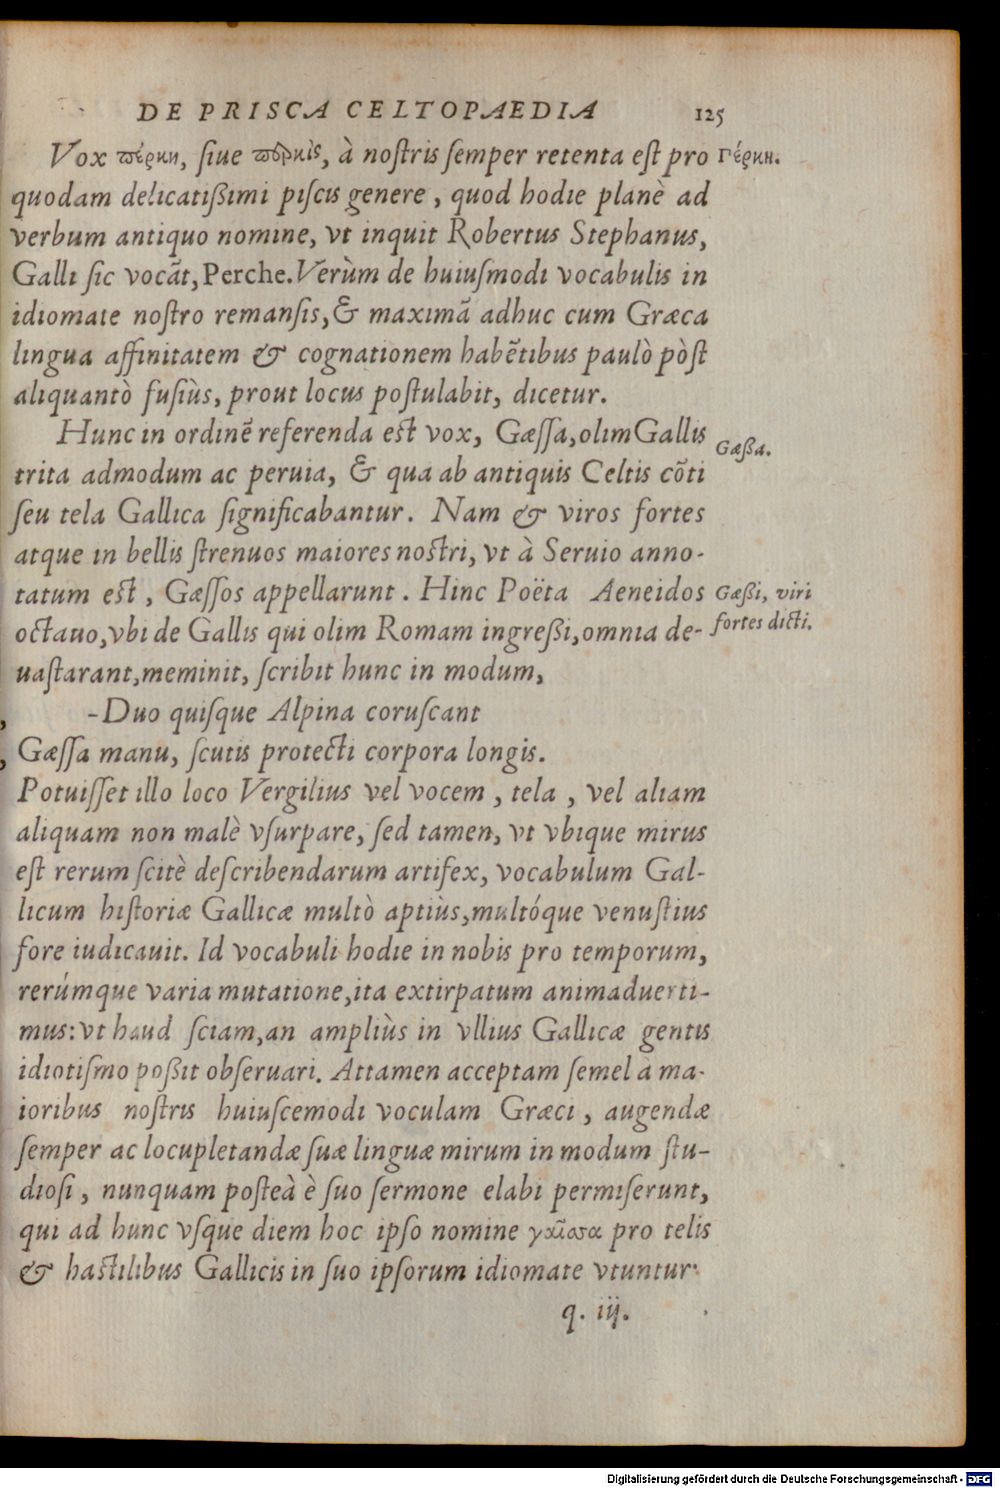 DE PRISCA CELTOPAEDIA 125
Vox ϖέρκη, ſiue ϖερκὶς, à noſtris ſemper retenta eſt pro Γέρκη.
quodam delicatiſſimi piſcis genere, quod hodie planè ad
verbum antiquo nomine, vt inquit Robertus Stephanus,
Galli ſic vocãt, Perche. Verùm de huiuſmodi vocabulis in
idiomate noſtro remanſis, & maximã adhuc cum Græca
lingua affinitatem & cognationem habẽtibus paulò pòſt
aliquantò fuſiùs, prout locus poſtulabit, dicetur.
Hunc in ordinẽ referenda eſt vox, Gæſſa, olim Gallis Gæßa.
trita admodum ac peruia, & qua ab antiquis Celtis cõti
ſeu tela Gallica ſignificabantur. Nam & viros fortes
atque in bellis ſtrenuos maiores noſtri, vt à Seruio anno-
tatum eſt, Gæſſos appellarunt. Hinc Poëta Aeneidos Gæßi, viri
octauo, vbi de Gallis qui olim Romam ingreßi, omnia de- fortes dicti.
uaſtarant, meminit, ſcribit hunc in modum,
-Duo quiſque Alpina coruſcant
Gæſſa manu, ſcutis protecti corpora longis.
Potuiſſet illo loco Vergilius vel vocem, tela, vel aliam
aliquam non malè vſurpare, ſed tamen, vt vbique mirus
eſt rerum ſcitè deſcribendarum artifex, vocabulum Gal-
licum hiſtoriæ Gallicæ multò aptiùs, multóque venuſtius
fore iudicauit. Id vocabuli hodie in nobis pro temporum,
rerúmque varia mutatione, ita extirpatum animaduerti-
mus: vt haud ſciam, an ampliùs in vllius Gallicæ gentis
idiotiſmo poßit obſeruari. Attamen acceptam ſemel à ma-
ioribus noſtris huiuſcemodi voculam Græci, augendæ
ſemper ac locupletandæ ſuæ linguæ mirum in modum ſtu-
dioſi, nunquam poſteà è ſuo ſermone elabi permiſerunt,
qui ad hunc vſque diem hoc ipſo nomine γαῖσα pro telis
& haſtilibus Gallicis in ſuo ipſorum idiomate vtuntur.
q. iij.
Digitalisierung gefördert durch die Deutsche Forschungsgemeinschaft - DFG